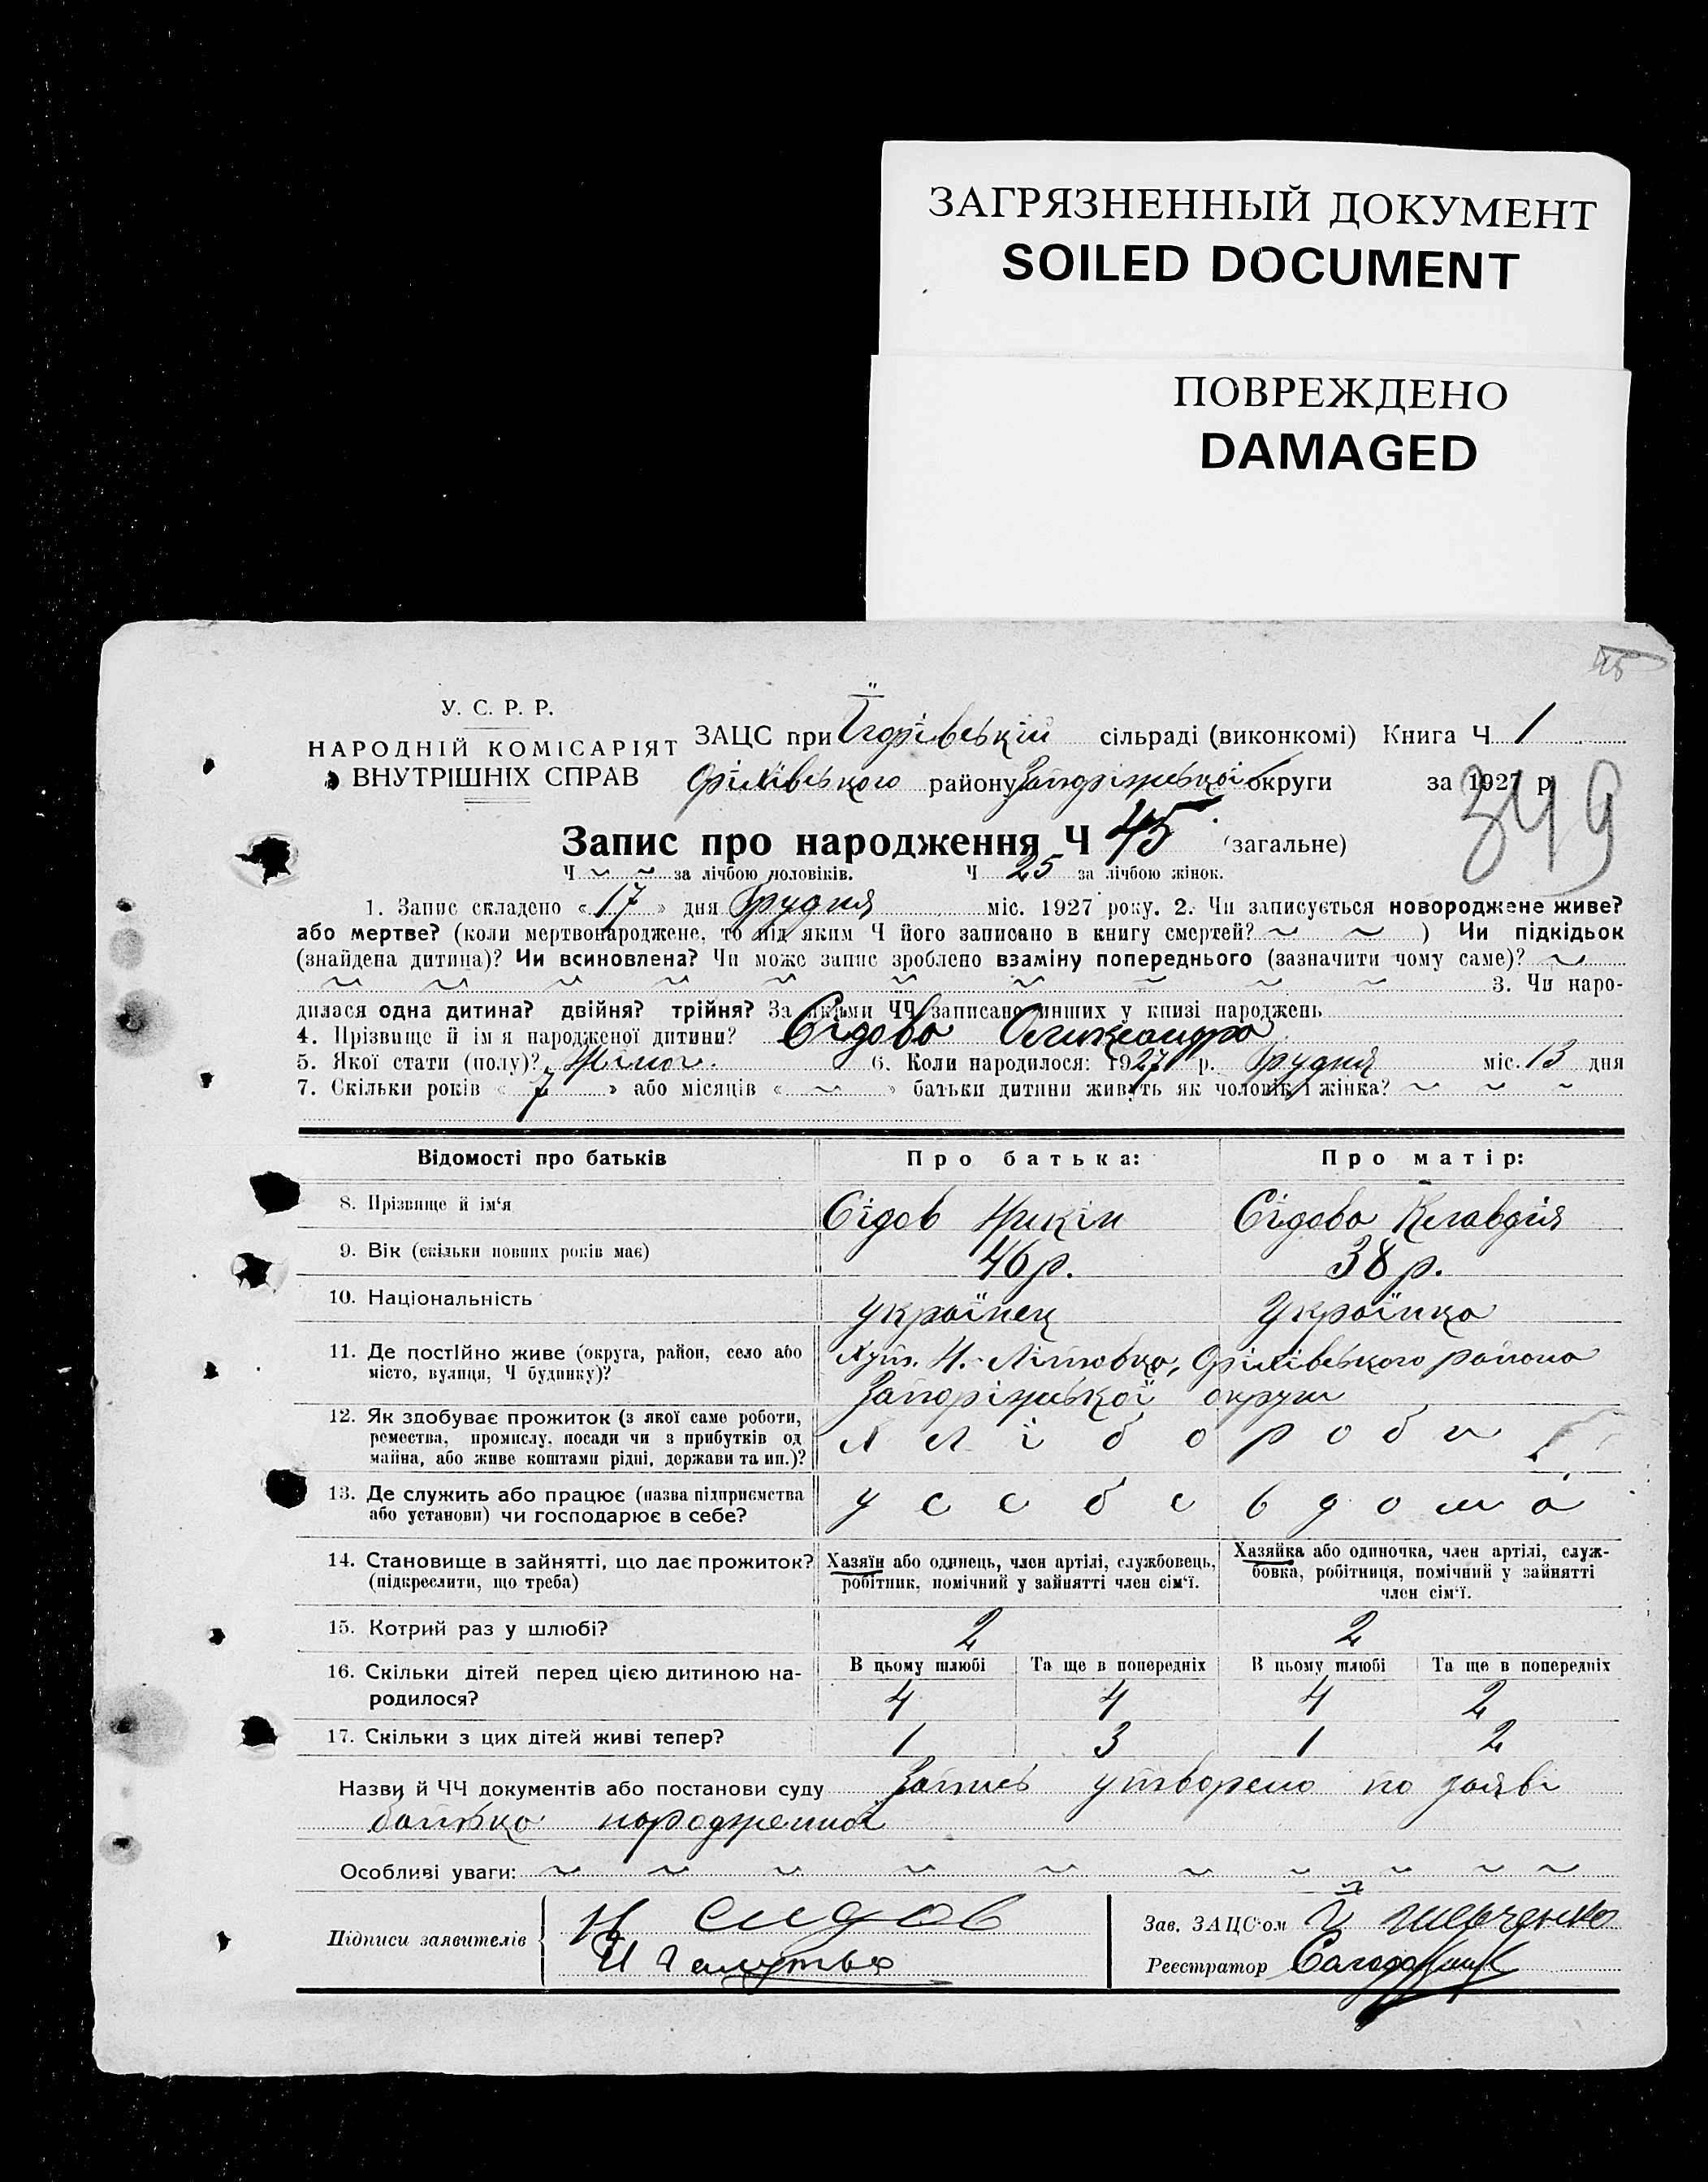 ЗАГРЯЗНЕННЫЙ ДОКУМЕНТ
SOILED DOCUMENT
ПОВРЕЖДЕНО
DAMAGED
45
У. С. Р. Р.
НАРОДНІЙ КОМІСАРІЯТ
ВНУТРІШНІХ СПРАВ
ЗАЦС при сільраді (виконкомі) Книга Ч 1
Оріхівського району Запоріжської округи за 1927 р.
349
Запис про народження Ч 45 (загальне)
Ч ~ ~ за лічбою чоловіків. Ч 25 за лічбою жінок.
1. Запис складено « 17 » дня Грудня міс. 1927 року. 2. Чи записується новороджене живе?
або мертве? (коли мертвонароджене, то під яким Ч його записано в книгу смертей? ~ ~ ) Чи підкідьок
(знайдена дитина)? Чи всиновлена? Чи може запис зроблено взаміну попереднього (зазначити чому саме)? ~
~ ~ ~ ~ ~ ~ ~ ~ ~ ~ 3. Чи наро-
дилася одна дитина? двійня? трійня? За якими ЧЧ записано инших у книзі народжень
4. Прізвище й ім'я народженої дитини? Сідова Олександра
5. Якої стати (полу)? Жіноч. 6. Коли народилося: 1927 р. Грудня міс. 13 дня
7. Скільки років « 7 » або місяців « ~ » батьки дитини живуть як чоловік і жінка? ~ ~ ~
Відомості про батьків Про батька: Про матір:
8. Прізвище й ім'я Сідов Никін Сідова Клавдія
9. Вік (скільки повних років має) 46 р. 38 р.
10. Національність українец Українка
11. Де постійно живе (округа, район, село або Хут. Н.-Літовка, Оріхівського района
місто, вулиця, Ч будинку)? Запоріжської округи
12. Як здобуває прожиток (з якої саме роботи, хлібороби
ремества, промислу, посади чи з прибутків од
майна, або живе коштами рідні, держави та ин.)?
13. Де служить або працює (назва підприємства у себе вдома
або установи) чи господарює в себе?
14. Становище в зайнятті, що дає прожиток? Хазяїн або одинець, член артілі, службовець, Хазяйка або одиночка, член артілі, служ-
(підкреслити, що треба) робітник, помічний у зайнятті член сім'ї. бовка, робітниця, помічний у зайнятті
член сім'ї.
15. Котрий раз у шлюбі? 2 2
16. Скільки дітей перед цією дитиною на- В цьому шлюбі Та ще в попередніх В цьому шлюбі Та ще в попередніх
родилося? 4 4 4 2
17. Скільки з цих дітей живі тепер? 1 3 1 2
Назви й ЧЧ документів або постанови суду Запись утворено по заяві
батька народженної
Особливі уваги: ~ ~ ~ ~ ~ ~ ~ ~ ~ ~
Підписи заявителів Н Сидов Зав. ЗАЦС'ом Шевченко
Реєстратор